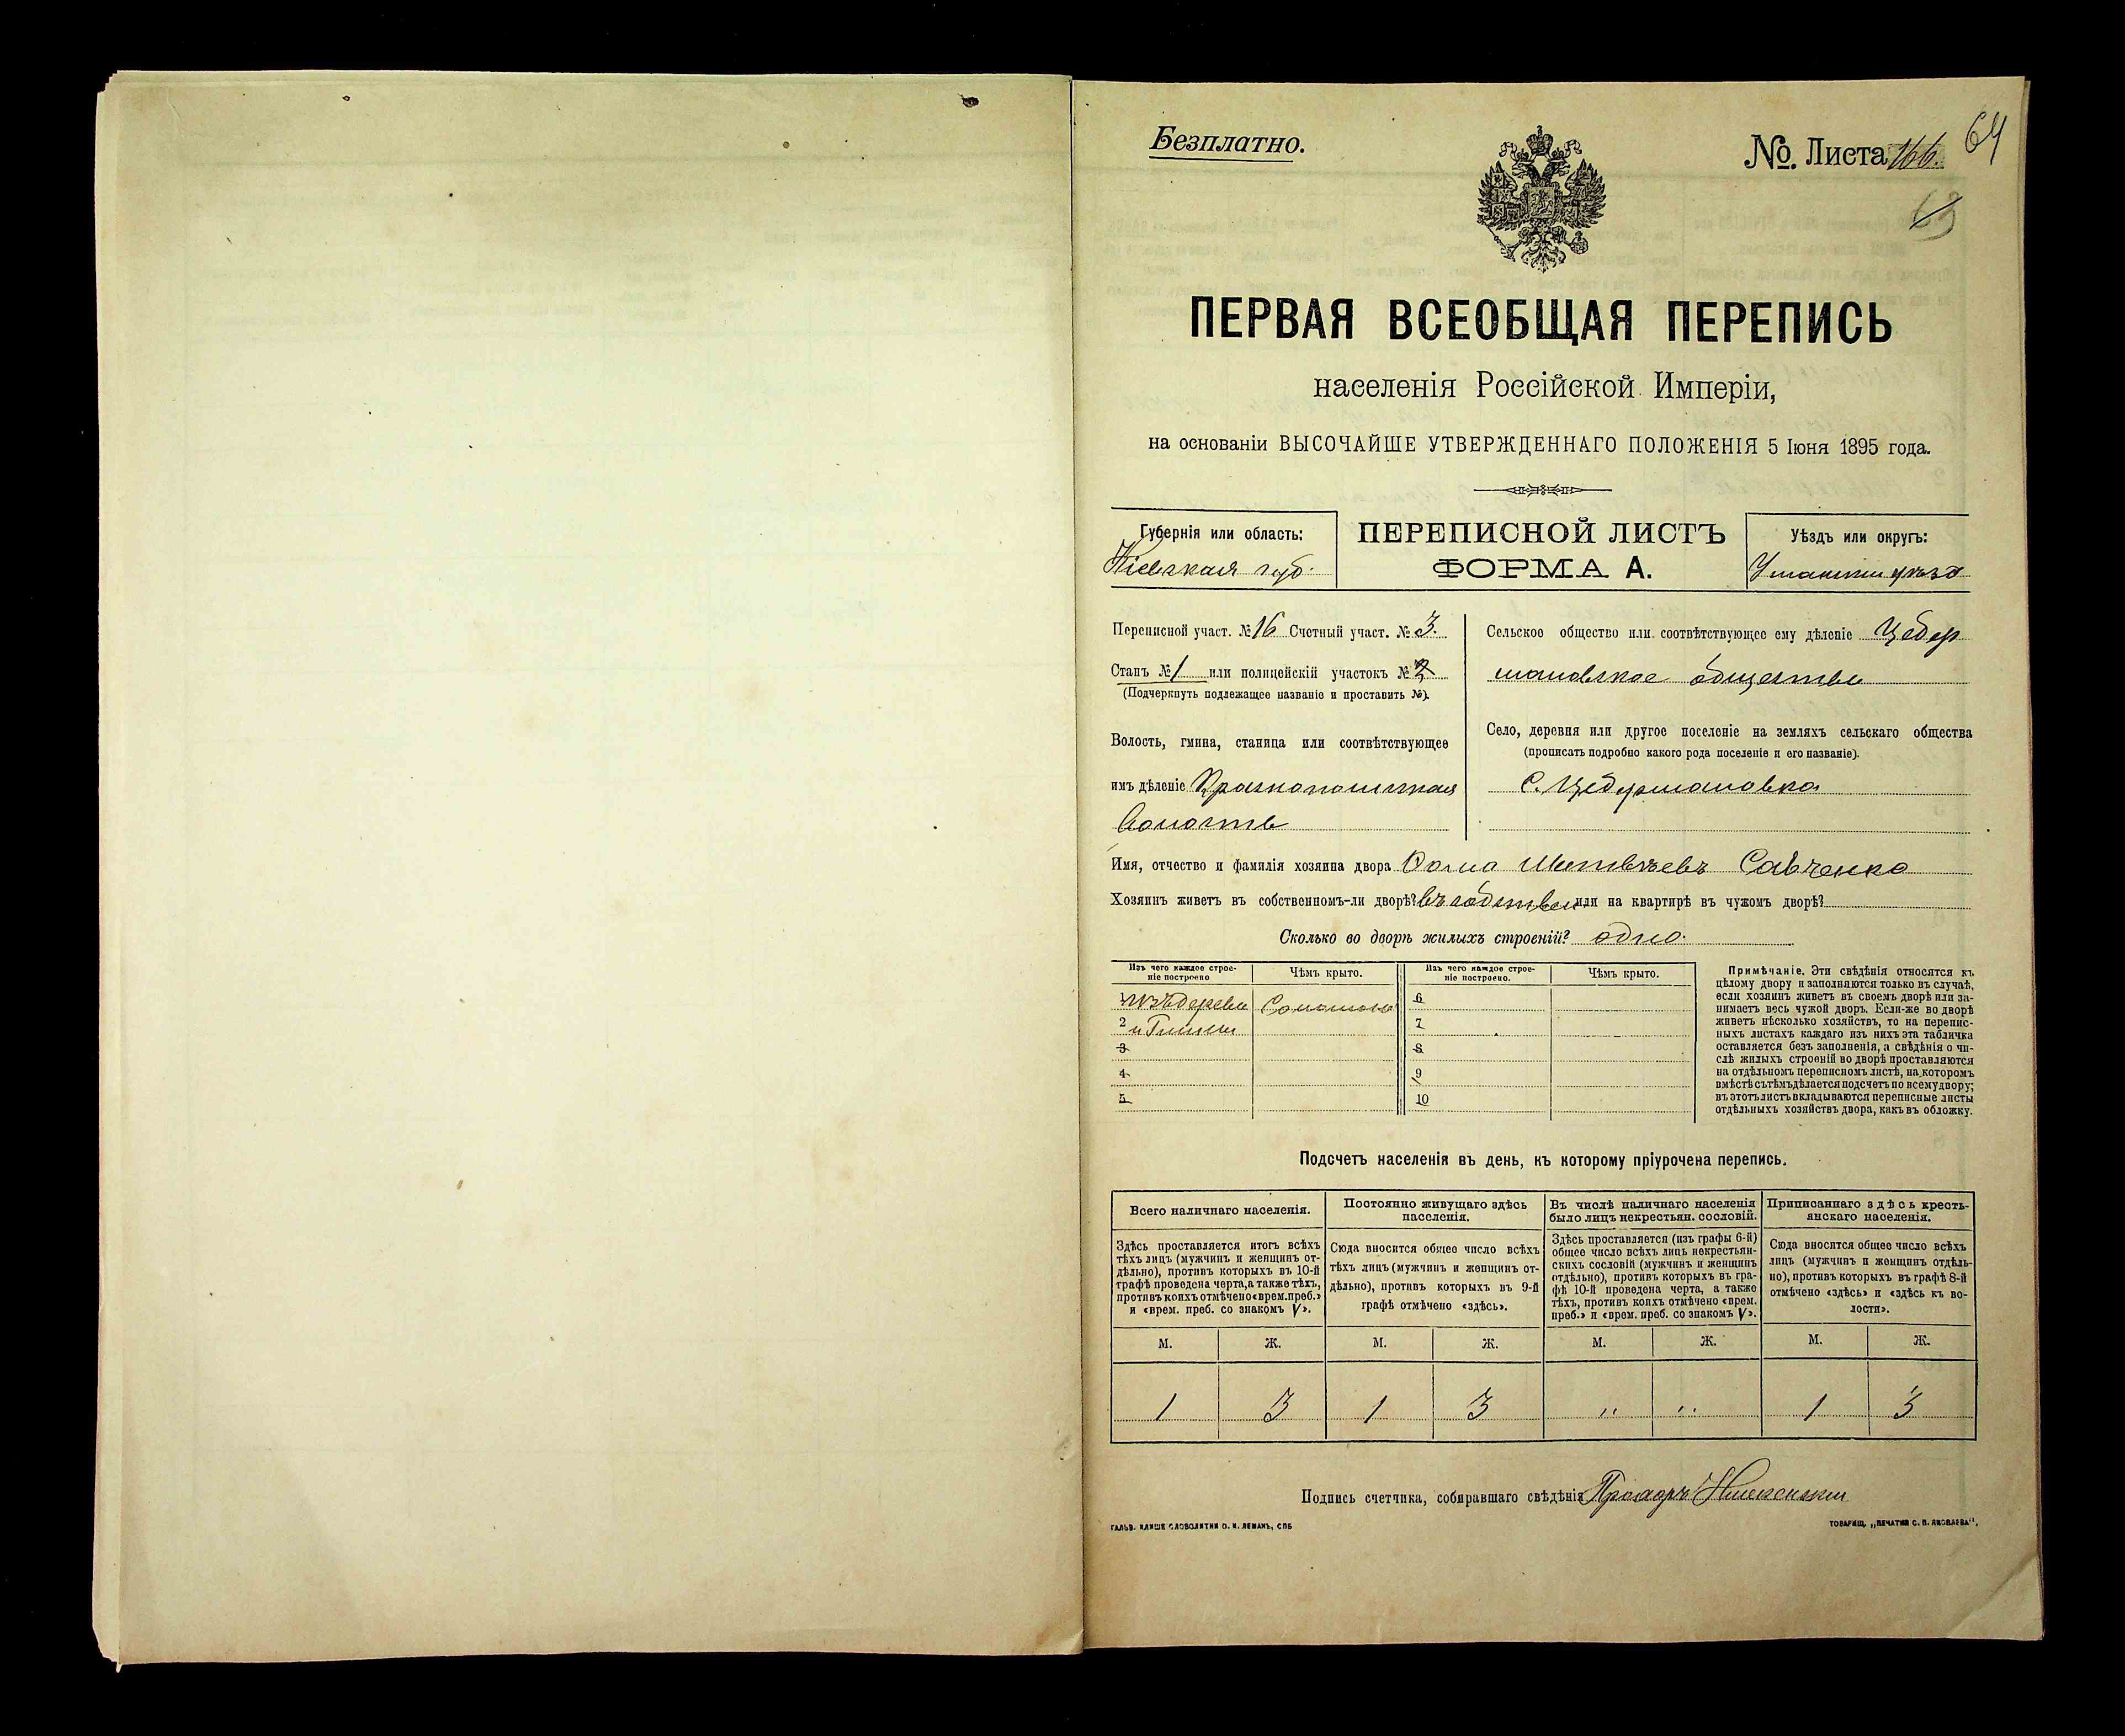 Безплатно.
№. Листа 166.
64
63
ПЕРВАЯ ВСЕОБЩАЯ ПЕРЕПИСЬ
населенія Россійской Имперіи,
на основаніи ВЫСОЧАЙШЕ УТВЕРЖДЕННАГО ПОЛОЖЕНІЯ 5 Іюня 1895 года.
Губернія или область:
Кіевская губ.
ПЕРЕПИСНОЙ ЛИСТЪ
ФОРМА А.
Уѣздъ или округъ:
Уманскій уѣздъ
Переписной участ. № 16 Счетный участ. № 3.
Станъ № 1 или полицейскій участокъ №
(Подчеркнуть подлежащее названіе и проставить №).
Волость, гмина, станица или соотвѣтствующее
имъ дѣленіе Краснопольская
Волость
Сельское общество или соотвѣтствующее ему дѣленіе Цебер
мановское общество
Село, деревня или другое поселеніе на земляхъ сельскаго общества
(прописать подробно какого рода поселеніе и его названіе).
С. Цебермановка
Имя, отчество и фамилія хозяина двора Фома Матвѣевъ Савченко
Хозяинъ живетъ въ собственномъ-ли дворѣ? въ собствен или на квартирѣ въ чужомъ дворѣ?
Сколько во дворѣ жилыхъ строеній? одно.
Изъ чего каждое строе-
ніе построено
Чѣмъ крыто.
Изъ чего каждое строе-
ніе построено.
Чѣмъ крыто.
1 Изъ дерева Соломою
2 и Глины
3
4
5
6
7
8
9
10
Примѣчаніе. Эти свѣдѣнія относятся къ
цѣлому двору и заполняются только въ случаѣ,
если хозяинъ живетъ въ своемъ дворѣ или за-
нимаетъ весь чужой дворъ. Если-же во дворѣ
живетъ нѣсколько хозяйствъ, то на перепис-
ныхъ листахъ каждаго изъ нихъ эта табличка
оставляется безъ заполненія, а свѣдѣнія о чи-
слѣ жилыхъ строеній во дворѣ проставляются
на отдѣльномъ переписномъ листѣ, на которомъ
вмѣстѣ съ тѣмъ дѣлается подсчетъ по всему двору;
въ этотъ листъ вкладываются переписные листы
отдѣльныхъ хозяйствъ двора, какъ въ обложку.
Подсчетъ населенія въ день, къ которому пріурочена перепись.
Всего наличнаго населенія.
Здѣсь проставляется итогъ всѣхъ
тѣхъ лицъ (мужчинъ и женщинъ от-
дѣльно), противъ которыхъ въ 10-й
графѣ проведена черта, а также тѣхъ,
противъ коихъ отмѣчено «врем. преб.»
и «врем. преб. со знакомъ V».
Постоянно живущаго здѣсь
населенія.
Сюда вносится общее число всѣхъ
тѣхъ лицъ (мужчинъ и женщинъ от-
дѣльно), противъ которыхъ въ 9-й
графѣ отмѣчено «здѣсь».
Въ числѣ наличнаго населенія
было лицъ некрестьян. сословій.
Здѣсь проставляется (изъ графы 6-й)
общее число всѣхъ лицъ некрестьян-
скихъ сословій (мужчинъ и женщинъ
отдѣльно), противъ которыхъ въ гра-
фѣ 10-й проведена черта, а также
тѣхъ, противъ коихъ отмѣчено «врем.
преб.» и «врем. преб. со знакомъ V».
Приписаннаго здѣсь кресть-
янскаго населенія.
Сюда вносится общее число всѣхъ
лицъ (мужчинъ и женщинъ отдѣль-
но), противъ которыхъ въ графѣ 8-й
отмѣчено «здѣсь» и «здѣсь къ во-
лости».
М. Ж. М. Ж. М. Ж. М. Ж.
1 3 1 3 " " 1 3
Подпись счетчика, собиравшаго свѣдѣнія
ГАЛЬВ. КЛИШЕ СЛОВОЛИТНИ О. И. ЛЕМАНЪ, СПБ
ТОВАРИЩ. „ПЕЧАТНЯ С. П. ЯКОВЛЕВА“.